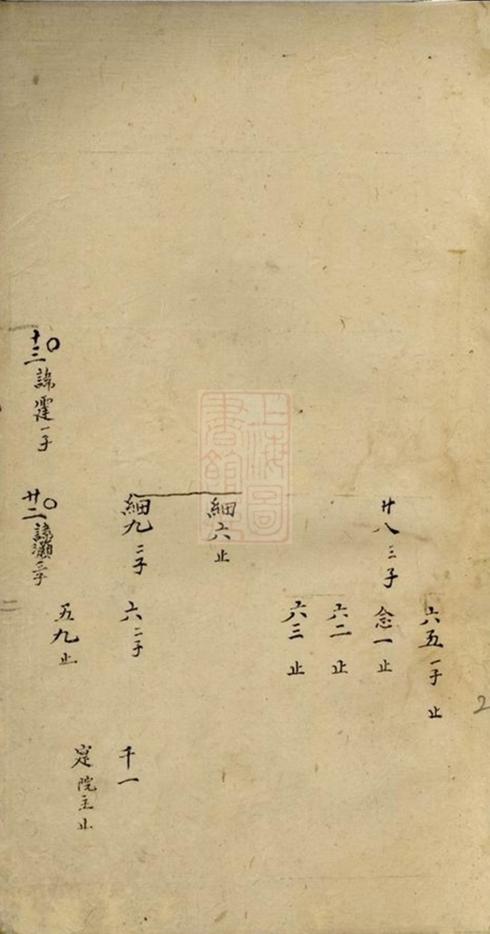 六五一子
止
廿八三子
念一止
六二止
六三止
細六止
細九二子
六二子
千一
五九止
寔院主止
十三
諱霆一子
廿二
諱灝三子
上海圖書館藏
2